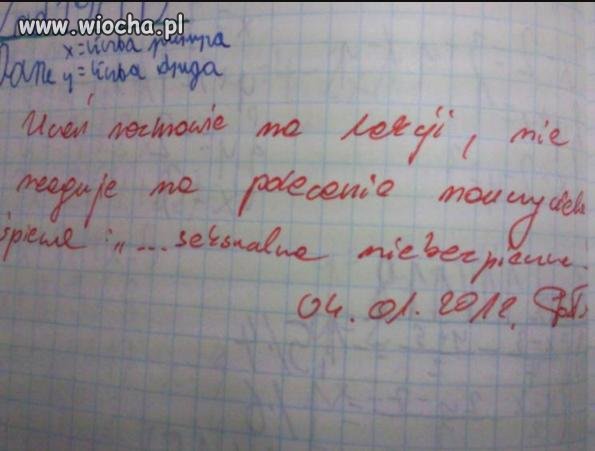 www.wiocha.pl
x = liczba pierwsza
Dane y = liczba druga
Uczeń rozmawia na lekcji, nie
reaguje na polecenia nauczyciela
śpiewa: „...seksualna niebezpieczna
04. 01. 2012.